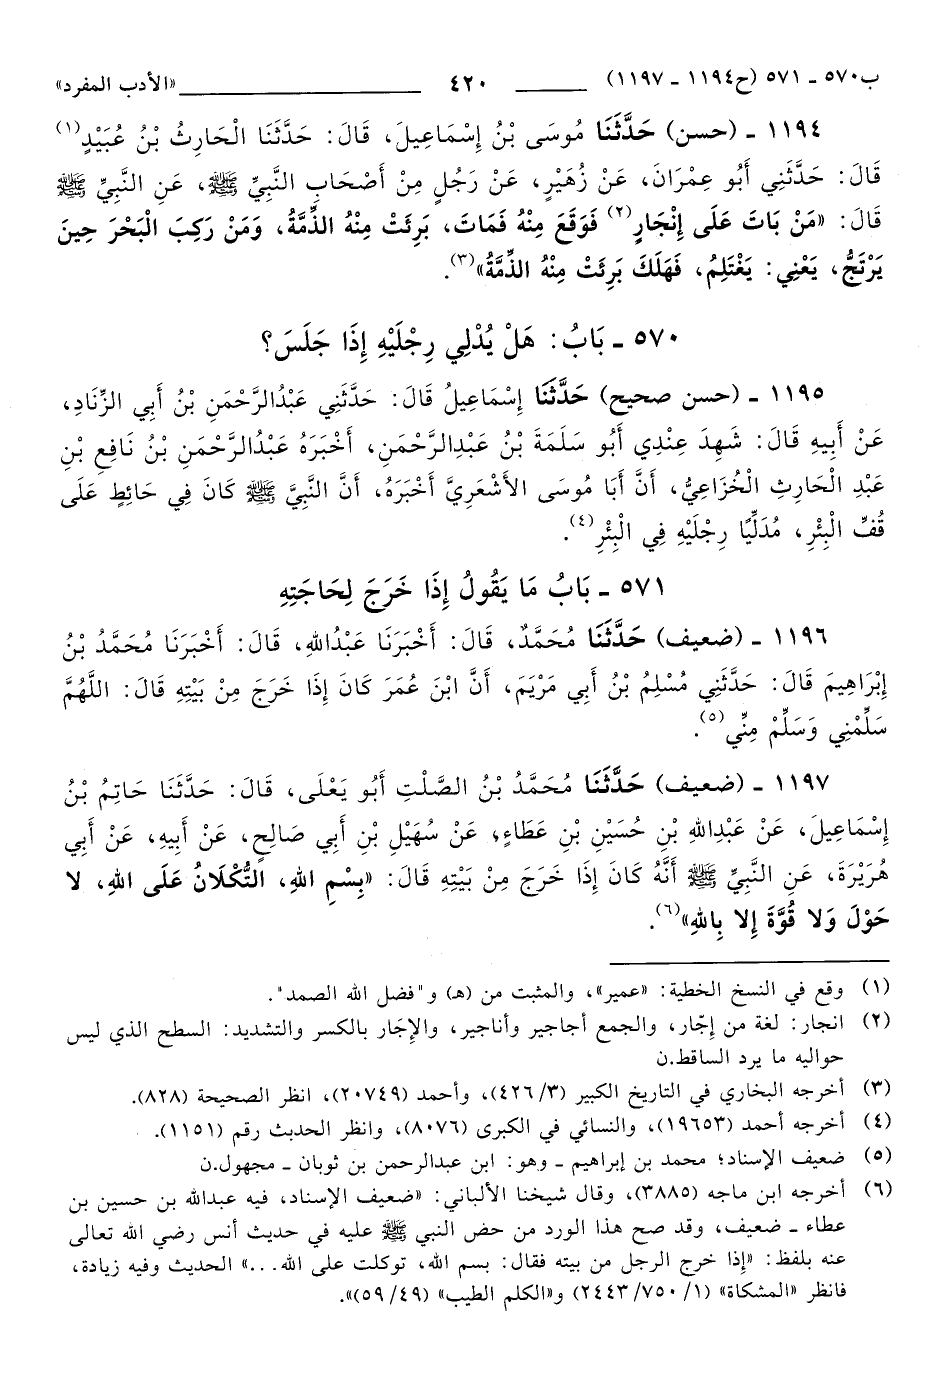 ب٥٧٠ ـ ٥٧١ (ح١١٩٤ ـ ١١٩٧) ٤٢٠ «الأدب المفرد»
١١٩٤ ـ (حسن) حَدَّثَنَا مُوسَى بْنُ إِسْمَاعِيلَ، قَالَ: حَدَّثَنَا الْحَارِثُ بْنُ عُبَيْدٍ(١)
قَالَ: حَدَّثَنِي أَبُو عِمْرَانَ، عَنْ زُهَيْرٍ، عَنْ رَجُلٍ مِنْ أَصْحَابِ النَّبِيِّ ﷺ، عَنِ النَّبِيِّ ﷺ
قَالَ: «مَنْ بَاتَ عَلَى إِنْجَارٍ(٢) فَوَقَعَ مِنْهُ فَمَاتَ، بَرِئَتْ مِنْهُ الذِّمَّةُ، وَمَنْ رَكِبَ الْبَحْرَ حِينَ
يَرْتَجُّ، يَعْنِي: يَغْتَلِمُ، فَهَلَكَ بَرِئَتْ مِنْهُ الذِّمَّةُ»(٣).
٥٧٠ ـ بَابُ: هَلْ يُدْلِي رِجْلَيْهِ إِذَا جَلَسَ؟
١١٩٥ ـ (حسن صحيح) حَدَّثَنَا إِسْمَاعِيلُ قَالَ: حَدَّثَنِي عَبْدُالرَّحْمَنِ بْنُ أَبِي الزِّنَادِ،
عَنْ أَبِيهِ قَالَ: شَهِدَ عِنْدِي أَبُو سَلَمَةَ بْنُ عَبْدِالرَّحْمَنِ، أَخْبَرَهُ عَبْدُالرَّحْمَنِ بْنُ نَافِعِ بْنِ
عَبْدِ الْحَارِثِ الْخُزَاعِيُّ، أَنَّ أَبَا مُوسَى الأَشْعَرِيَّ أَخْبَرَهُ، أَنَّ النَّبِيَّ ﷺ كَانَ فِي حَائِطٍ عَلَى
قُفِّ الْبِئْرِ، مُدَلِّيًا رِجْلَيْهِ فِي الْبِئْرِ(٤).
٥٧١ ـ بَابُ مَا يَقُولُ إِذَا خَرَجَ لِحَاجَتِهِ
١١٩٦ ـ (ضعيف) حَدَّثَنَا مُحَمَّدٌ، قَالَ: أَخْبَرَنَا عَبْدُاللهِ، قَالَ: أَخْبَرَنَا مُحَمَّدُ بْنُ
إِبْرَاهِيمَ قَالَ: حَدَّثَنِي مُسْلِمُ بْنُ أَبِي مَرْيَمَ، أَنَّ ابْنَ عُمَرَ كَانَ إِذَا خَرَجَ مِنْ بَيْتِهِ قَالَ: اللَّهُمَّ
سَلِّمْنِي وَسَلِّمْ مِنِّي(٥).
١١٩٧ ـ (ضعيف) حَدَّثَنَا مُحَمَّدُ بْنُ الصَّلْتِ أَبُو يَعْلَى، قَالَ: حَدَّثَنَا حَاتِمُ بْنُ
إِسْمَاعِيلَ، عَنْ عَبْدِاللهِ بْنِ حُسَيْنِ بْنِ عَطَاءٍ، عَنْ سُهَيْلِ بْنِ أَبِي صَالِحٍ، عَنْ أَبِيهِ، عَنْ أَبِي
هُرَيْرَةَ، عَنِ النَّبِيِّ ﷺ أَنَّهُ كَانَ إِذَا خَرَجَ مِنْ بَيْتِهِ قَالَ: «بِسْمِ اللهِ، التُّكْلَانُ عَلَى اللهِ، لا
حَوْلَ وَلا قُوَّةَ إِلا بِاللهِ»(٦).
(١) وقع في النسخ الخطية: «عمير»، والمثبت من (هـ) و"فضل الله الصمد".
(٢) انجار: لغة من إجّار، والجمع أجاجير وأناجير، والإجَار بالكسر والتشديد: السطح الذي ليس
حواليه ما يرد الساقط.ن
(٣) أخرجه البخاري في التاريخ الكبير (٣/ ٤٢٦)، وأحمد (٢٠٧٤٩)، انظر الصحيحة (٨٢٨).
(٤) أخرجه أحمد (١٩٦٥٣)، والنسائي في الكبرى (٨٠٧٦)، وانظر الحديث رقم (١١٥١).
(٥) ضعيف الإسناد؛ محمد بن إبراهيم ـ وهو: ابن عبدالرحمن بن ثوبان ـ مجهول.ن
(٦) أخرجه ابن ماجه (٣٨٨٥)، وقال شيخنا الألباني: «ضعيف الإسناد، فيه عبدالله بن حسين بن
عطاء ـ ضعيف، وقد صح هذا الورد من حض النبي ﷺ عليه في حديث أنس رضي الله تعالى
عنه بلفظ: «إذا خرج الرجل من بيته فقال: بسم الله، توكلت على الله...» الحديث وفيه زيادة،
فانظر «المشكاة» (١/ ٧٥٠/ ٢٤٤٣) و«الكلم الطيب» (٤٩/ ٥٩)».